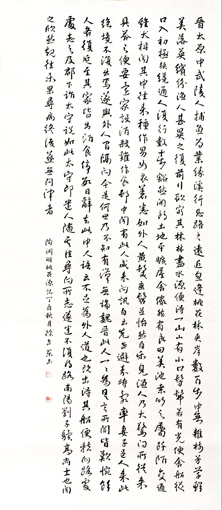 晉太原中武陵人捕魚為業緣溪行忘路之遠近忽逢桃花林夾岸數百步中無雜樹芳草鮮
美落英繽紛漁人甚異之復前行欲窮其林林盡水源便得一山山有小口髣髴若有光便舍船從
口入初極狹纔通人復行數十步豁然開朗土地平曠屋舍儼然有良田美池桑竹之屬阡陌交通
雞犬相聞其中往來種作男女衣著悉如外人黃髮垂髫並怡然自樂見漁人乃大驚問所從來
具答之便要還家設酒殺雞作食村中聞有此人咸來問訊自云先世避秦時亂率妻子邑人來此
絕境不復出焉遂與外人間隔問今是何世乃不知有漢無論魏晉此人一一為具言所聞皆歎惋餘
人各復延至其家皆出酒食停數日辭去此中人語云不足為外人道也既出得其船便扶向路處
處志之及郡下詣太守說如此太守即遣人隨其往尋向所志遂迷不復得路南陽劉子驥高尚士也聞
之欣然規往未果尋病終後遂無問津者
陶淵明桃花源記丁酉秋月徐